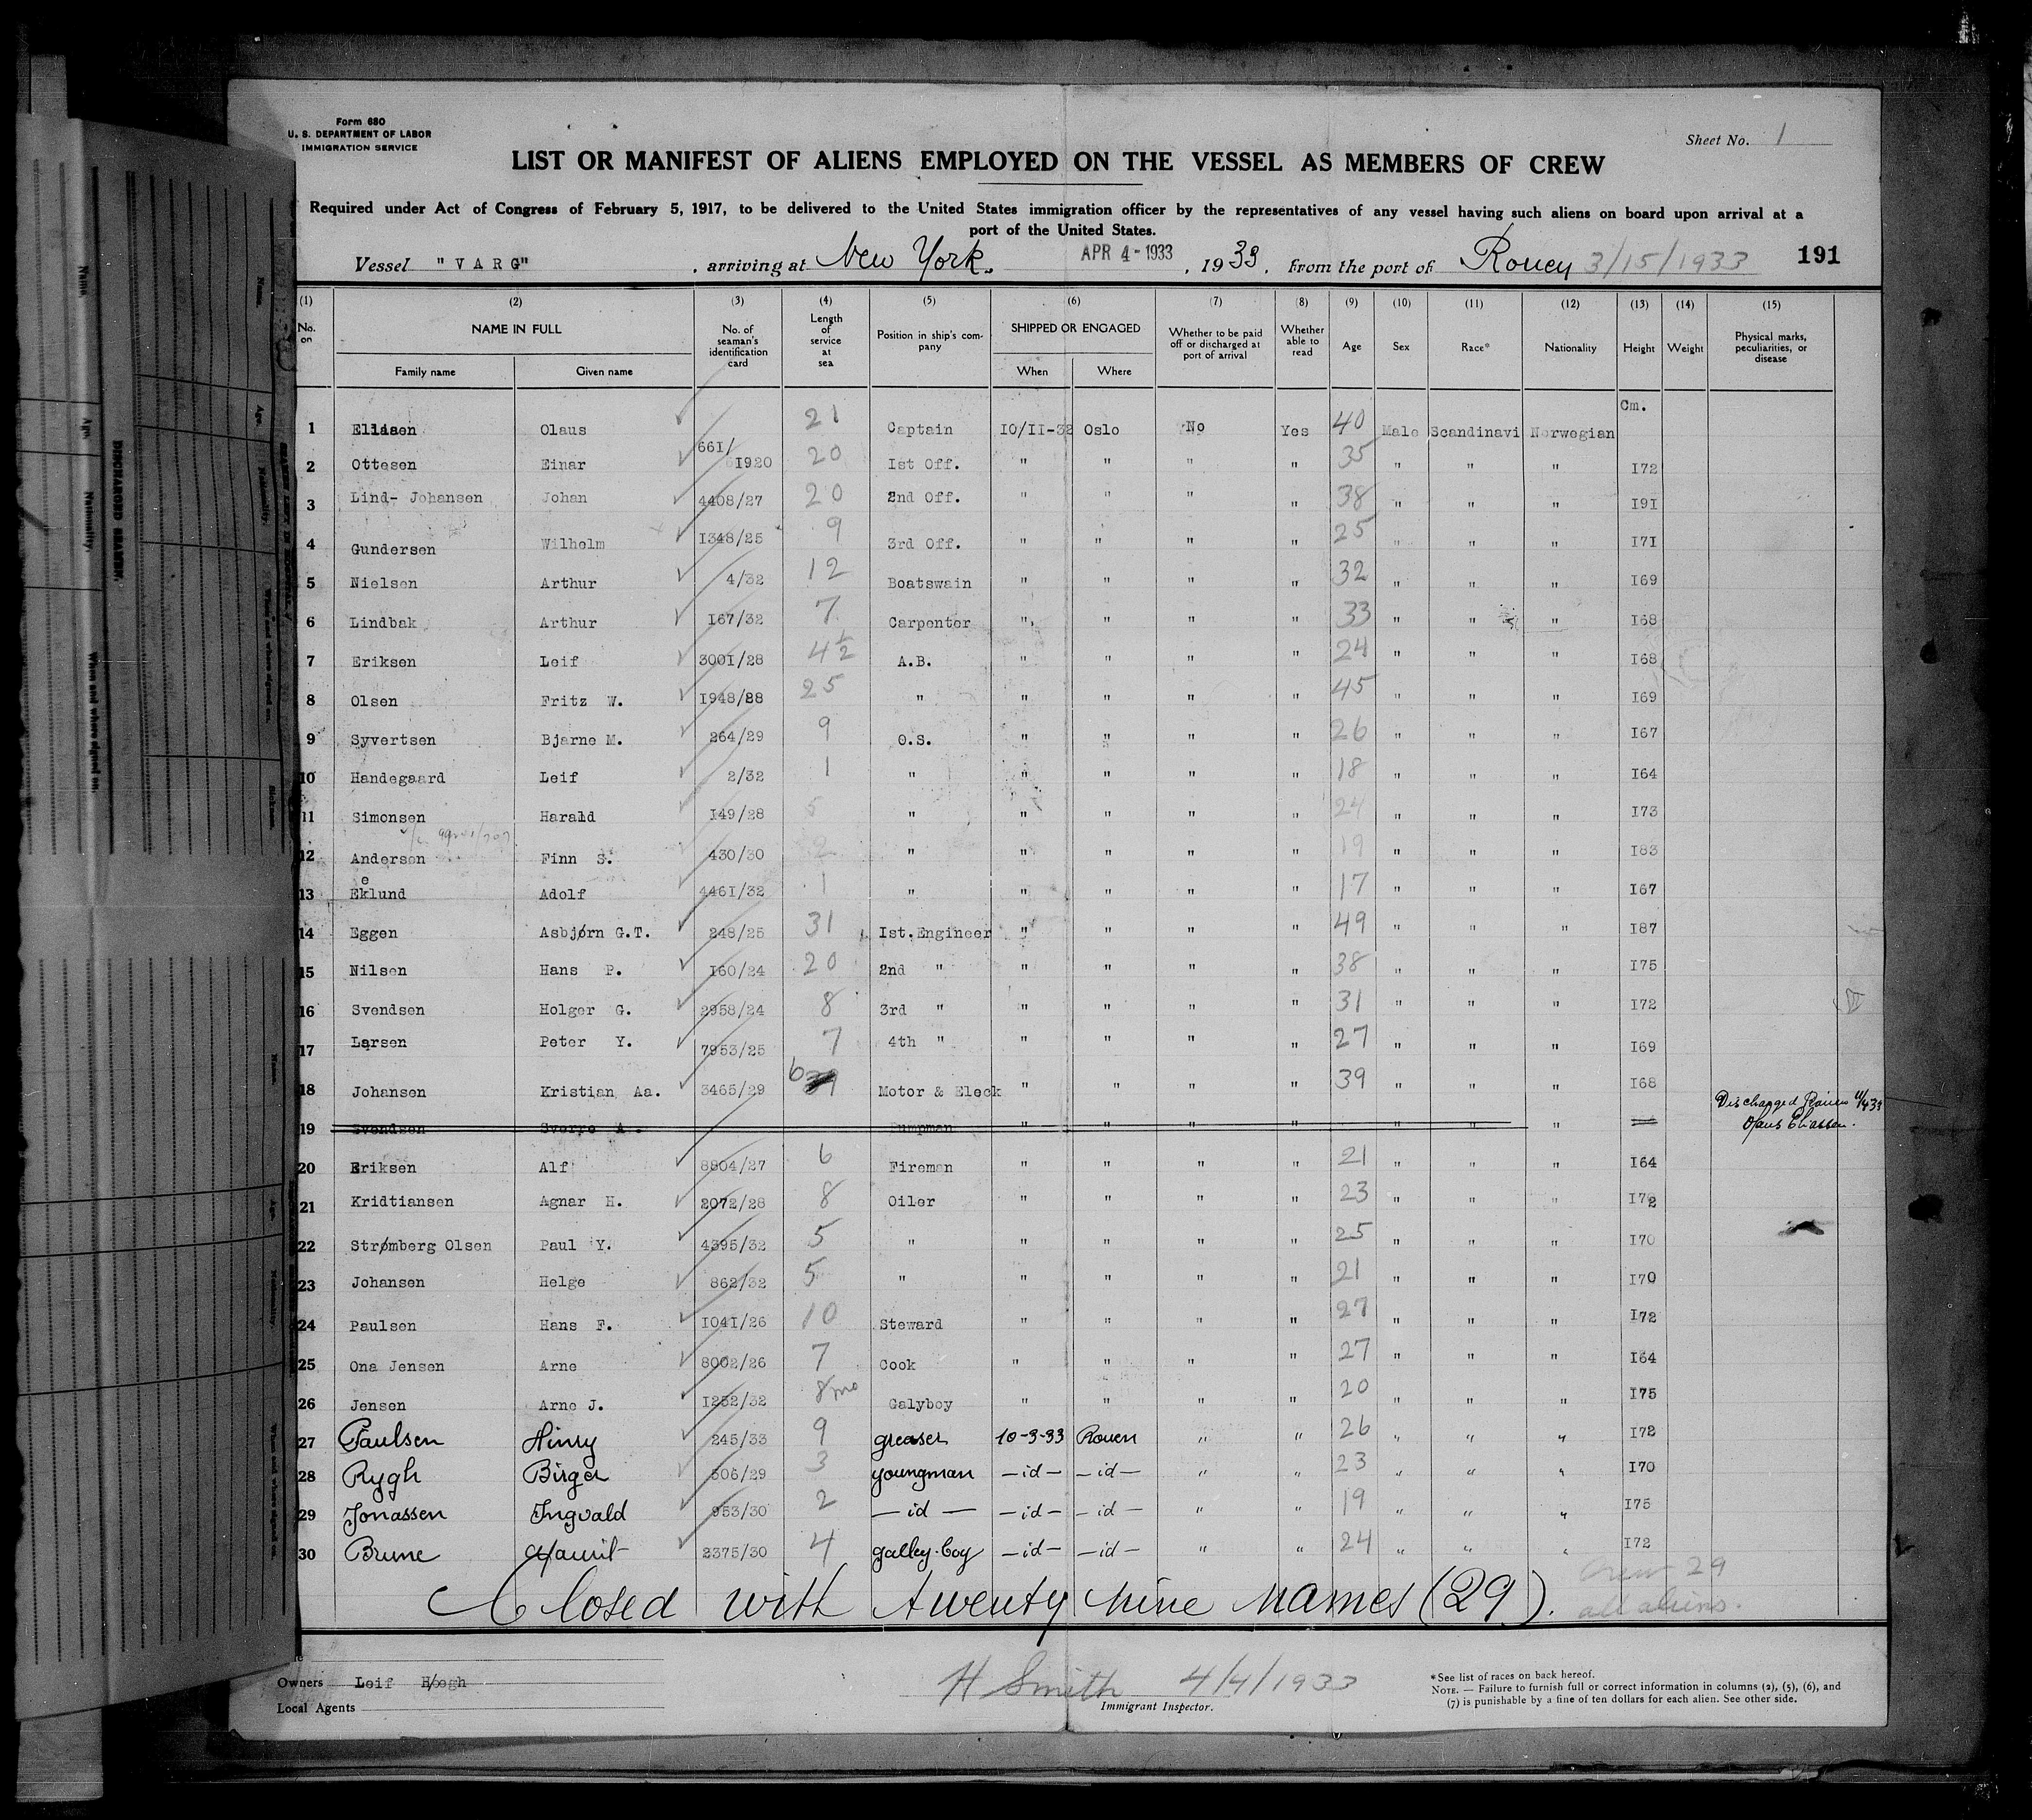 Form 680
U. S. DEPARTMENT OF LABOR
IMMIGRATION SERVICE
Sheet No. 1
LIST OR MANIFEST OF ALIENS EMPLOYED ON THE VESSEL AS MEMBERS OF CREW
Required under Act of Congress of February 5, 1917, to be delivered to the United States immigration officer by the representatives of any vessel having such aliens on board upon arrival at a
port of the United States.
Vessel "VARG" , arriving at New York. APR 4-1933 , 1933, from the port of Rouen 3/15/1933 191
(1) (2) (3) (4) (5) (6) (7) (8) (9) (10) (11) (12) (13) (14) (15)
No. on NAME IN FULL Family name Given name No. of seaman's identification card Length of service at sea Position in ship's company SHIPPED OR ENGAGED When Where Whether to be paid off or discharged at port of arrival Whether able to read Age Sex Race* Nationality Height Weight Physical marks, peculiarities, or disease
Cm.
1 Eliasen Olaus 21 Captain 10/II-32 Oslo No Yes 40 Male Scandinavi Norwegian
2 Ottesen Einar 661/1920 20 Ist Off. " " " " 35 " " " I72
3 Lind- Johansen Johan 4408/27 20 2nd Off. " " " " 38 " " " I9I
4 Gundersen Wilhelm I348/25 9 3rd Off. " " " " 25 " " " I7I
5 Nielsen Arthur 4/32 12 Boatswain " " " " 32 " " " I69
6 Lindbak Arthur I67/32 7 Carpenter " " " " 33 " " " I68
7 Eriksen Leif 300I/28 4½ A.B. " " " " 24 " " " I68
8 Olsen Fritz W. I948/28 25 " " " " " 45 " " " I69
9 Syvertsen Bjarne M. 264/29 9 O.S. " " " " 26 " " " I67
10 Handegaard Leif 2/32 1 " " " " " 18 " " " I64
11 Simonsen Harald I49/28 5 " " " " " 24 " " " I73
12 Andersen Finn S. 430/30 2 " " " " " 19 " " " I83
e
13 Eklund Adolf 446I/32 1 " " " " " 17 " " " I67
14 Eggen Asbjørn G.T. 248/25 31 Ist.Engineer " " " " 49 " " " I87
15 Nilsen Hans P. I60/24 20 2nd " " " " " 38 " " " I75
16 Svendsen Holger G. 2958/24 8 3rd " " " " " 31 " " " I72
17 Larsen Peter Y. 7953/25 7 4th " " " " " 27 " " " I69
18 Johansen Kristian Aa. 3465/29 6 Motor & Eleck " " " " 39 " " " I68
Discharged Rouen
19 Svendsen Sverre A. Pumpman " " " " " " "
Olaus Eliassen.
20 Eriksen Alf 8804/27 6 Fireman " " " " 21 " " " I64
21 Kridtiansen Agnar H. 2072/28 8 Oiler " " " " 23 " " " I72
22 Strømberg Olsen Paul Y. 4395/32 5 " " " " " 25 " " " I70
23 Johansen Helge 862/32 5 " " " " " 21 " " " I70
24 Paulsen Hans F. I04I/26 10 Steward " " " " 27 " " " I72
25 Ona Jensen Arne 8002/26 7 Cook " " " " 27 " " " I64
26 Jensen Arne J. I252/32 8 mo Galyboy " " " " 20 " " " I75
27 Paulsen Hinry 245/33 9 greaser 10-3-33 Rouen " " 26 " " " I72
28 Rygh Birger 506/29 3 youngman —id— —id— " " 23 " " " I70
29 Jonassen Ingvald 953/30 2 — id — —id— —id— " " 19 " " " I75
30 Brune 2375/30 4 galley-boy —id— —id— " " 24 " " " I72
Closed with twenty nine names (29).
Crew 29
all aliens.
Owners Leif Høegh
Local Agents
H Smith 4/4/1933
Immigrant Inspector.
*See list of races on back hereof.
NOTE. — Failure to furnish full or correct information in columns (2), (5), (6), and
(7) is punishable by a fine of ten dollars for each alien. See other side.